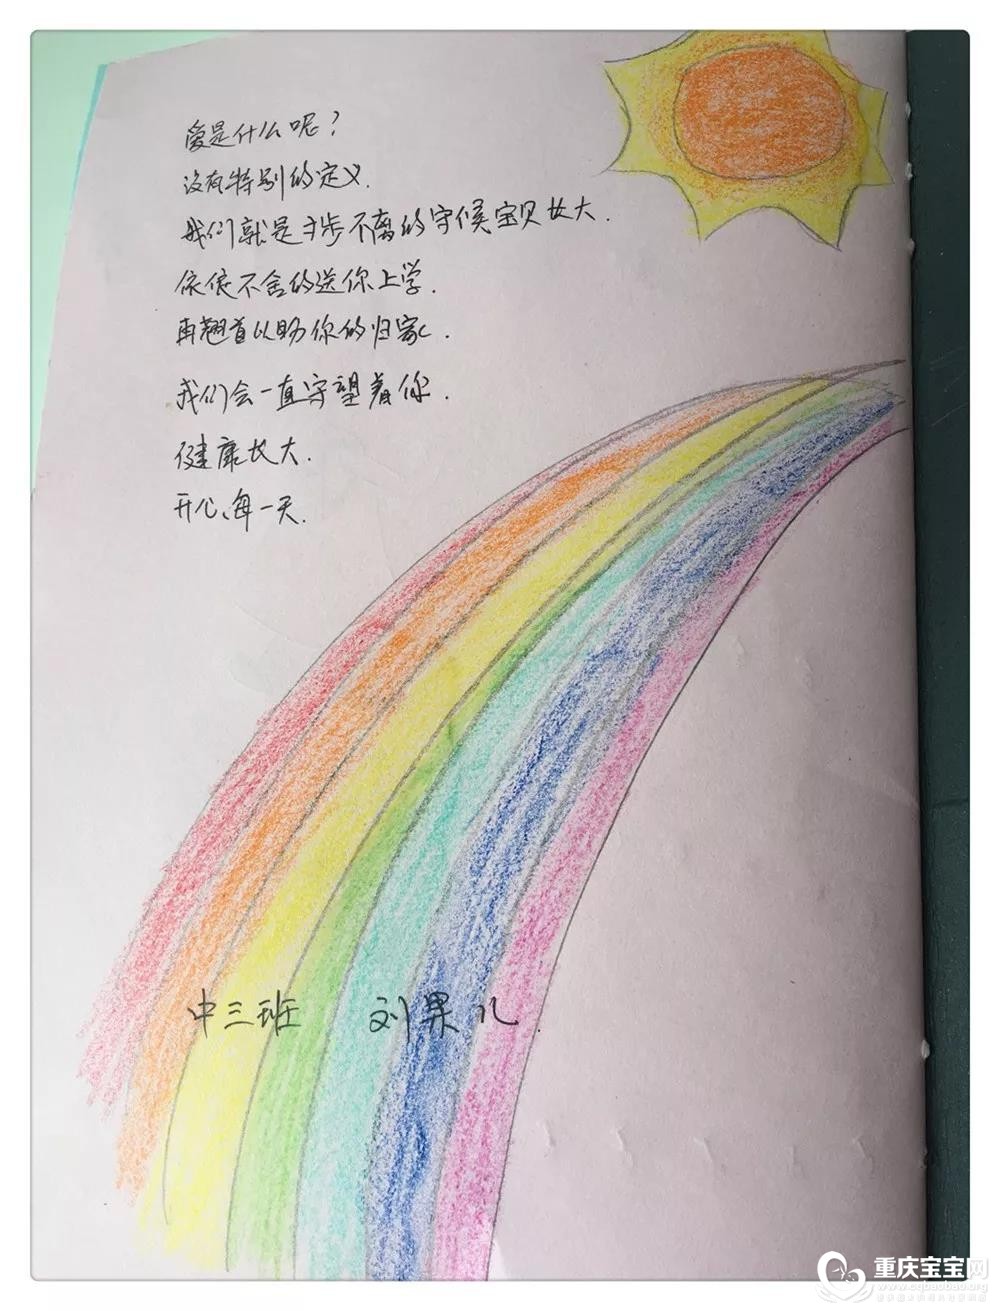 爱是什么呢？
没有特别的定义.
我们就是寸步不离的守候宝贝长大.
依依不舍的送你上学.
再翘首以盼你的归家.
我们会一直守望着你.
健康长大.
开心每一天.
中三班 刘果儿.
重庆宝宝网
www.cqbaobao.com